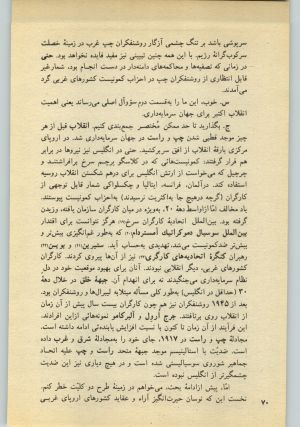 سرپوشی باشد بر تنگ چشمی آزگار روشنفکران چپ غرب در زمینهٔ خصلت
سرکوب‌گرانهٔ رژیم. با این همه چنین تبیینی نیز مفید فایده نخواهد بود. حتی
در زمانی که تصفیه‌ها و محاکمه‌های دامنه‌دار در دست انجام بود، شمار غیر
قابل انتظاری از روشنفکران چپ در احزاب کمونیست کشورهای غربی گرد
می‌آمدند.
س. خوب، این ما را به‌قسمت دوم سؤوال اصلی می‌رساند یعنی اهمیت
انقلاب اکتبر برای جهان سرمایه‌داری.
ج. بگذارید تا حد ممکن مُختصر جمع‌بندی کنیم. انقلاب قبل از هر
چیز موجد قطبی شدن چپ و راست در جهان سرمایه‌داری شد. در اروپای
مرکزی بارقهٔ انقلاب از افق سربرکشید. حتی در انگلیس نیز نیروها در برابر
هم قرار گرفتند: کمونیست‌هائی که در کلاسگو پرچم سرخ برافراشتند و
چرچیل که می‌خواست از ارتش انگلیس برای درهم شکستن انقلاب روسیه
استفاده کند. درآلمان، فرانسه، ایتالیا و چکسلواکی شمار قابل توجهی از
کارگران (گرچه درهیچ جا به‌اکثریت نرسیدند) به‌احزاب کمونیست پیوستند.
باد مخالف اما ازاواسط دههٔ ۲۰، به‌ویژه در میان کارگران سازمان یافته، وزیدن
گرفته بود. بین‌الملل اتحادیهٔ کارگران سرخ هرگز نتوانست برای اقتدار
بین‌الملل سوسیال دموکراتیک آمستردام، که به‌طور غم‌انگیزی بیش‌تر و
بیش‌تر ضدکمونیست می‌شد، تهدیدی به‌حساب آید. سیترین و بوین
رهبران کنگرهٔ اتحادیه‌های کارگری نیز از آن‌ها پیروی کردند. کارگران
کشورهای غربی، دیگر انقلابی نبودند. آنان برای بهبود موقعیت خود در دل
نظام سرمایه‌داری می‌جنگیدند نه برای انهدام آن. جبههٔ خلق در خلال دههٔ
۳۰ (حداقل در انگلیس) به‌طور کلی مسأله مبتلابه لیبرال‌ها و روشنفکران بود.
بعد از ۱۹۴۵ روشنفکران نیز هم چون کارگران بیست سال پیش از آن زمان
از انقلاب روی برتافتند. جرج ارول و آلبرکامو نمونه‌هائی ازاین افرادند.
این فرآیند از آن زمان تا کنون با نسبت افزایش یابنده‌ئی ادامه داشته است.
مجادلهٔ چپ و راست در ۱۹۱۷، جای خود را به‌مجادلهٔ شرق و غرب داده
است. ضدیّت با استالینیسم موجد جبههٔ متحد راست و چپ علیه اتحاد
جماهیر شوروی سوسیالیستی شده است. و در هیچ دیاری نیز این ضدیت
چشمگیرتر از انگلیس نبوده است.
امّا، پیش ازادامهٔ بحث، می‌خواهم در زمینهٔ طرح دو کلیّت خطر کنم.
نخست این که نوسان حیرت‌انگیز آراء و عقاید کشورهای اروپای غربی
۷۰